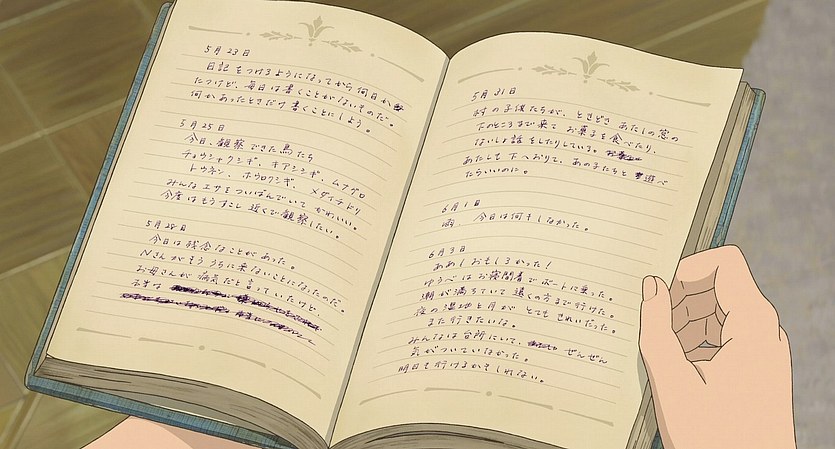 5月23日
日記をつけるようになってから何日か
たつけど、毎日は書くことがないものだ。
何かあったときだけ書くことにしよう。
5月25日
今日、観察できた鳥たち
チュウシャクシギ、キアシシギ、ムナグロ
トウネン、ホウロクシギ、メダイチドリ
みんなエサをついばんでいてかわいい。
今度はもうすこし近くで観察したい。
5月28日
今日は残念なことがあった。
Nさんがもううちに来ないことになったのだ。
お母さんが病気だと言っていたけど、
本当は
5月31日
村の子供たちが、ときどきあたしの窓の
下のところまで来てお菓子を食べたり、
ないしょ話をしたりしている。
あたしも下へおりて、あの子たちと遊べ
たらいいのに。
6月1日
雨 今日は何もしなかった。
6月3日
ああ!おもしろかった!
ゆうべはお寝間着でボートに乗った。
潮が満ちていて遠くの方まで行けた。
夜の湿地と月がとてもきれいだった。
また行きたいな。
みんなは台所にいて、ぜんぜん
気がついていなかった。
明日も行けるかもしれない。